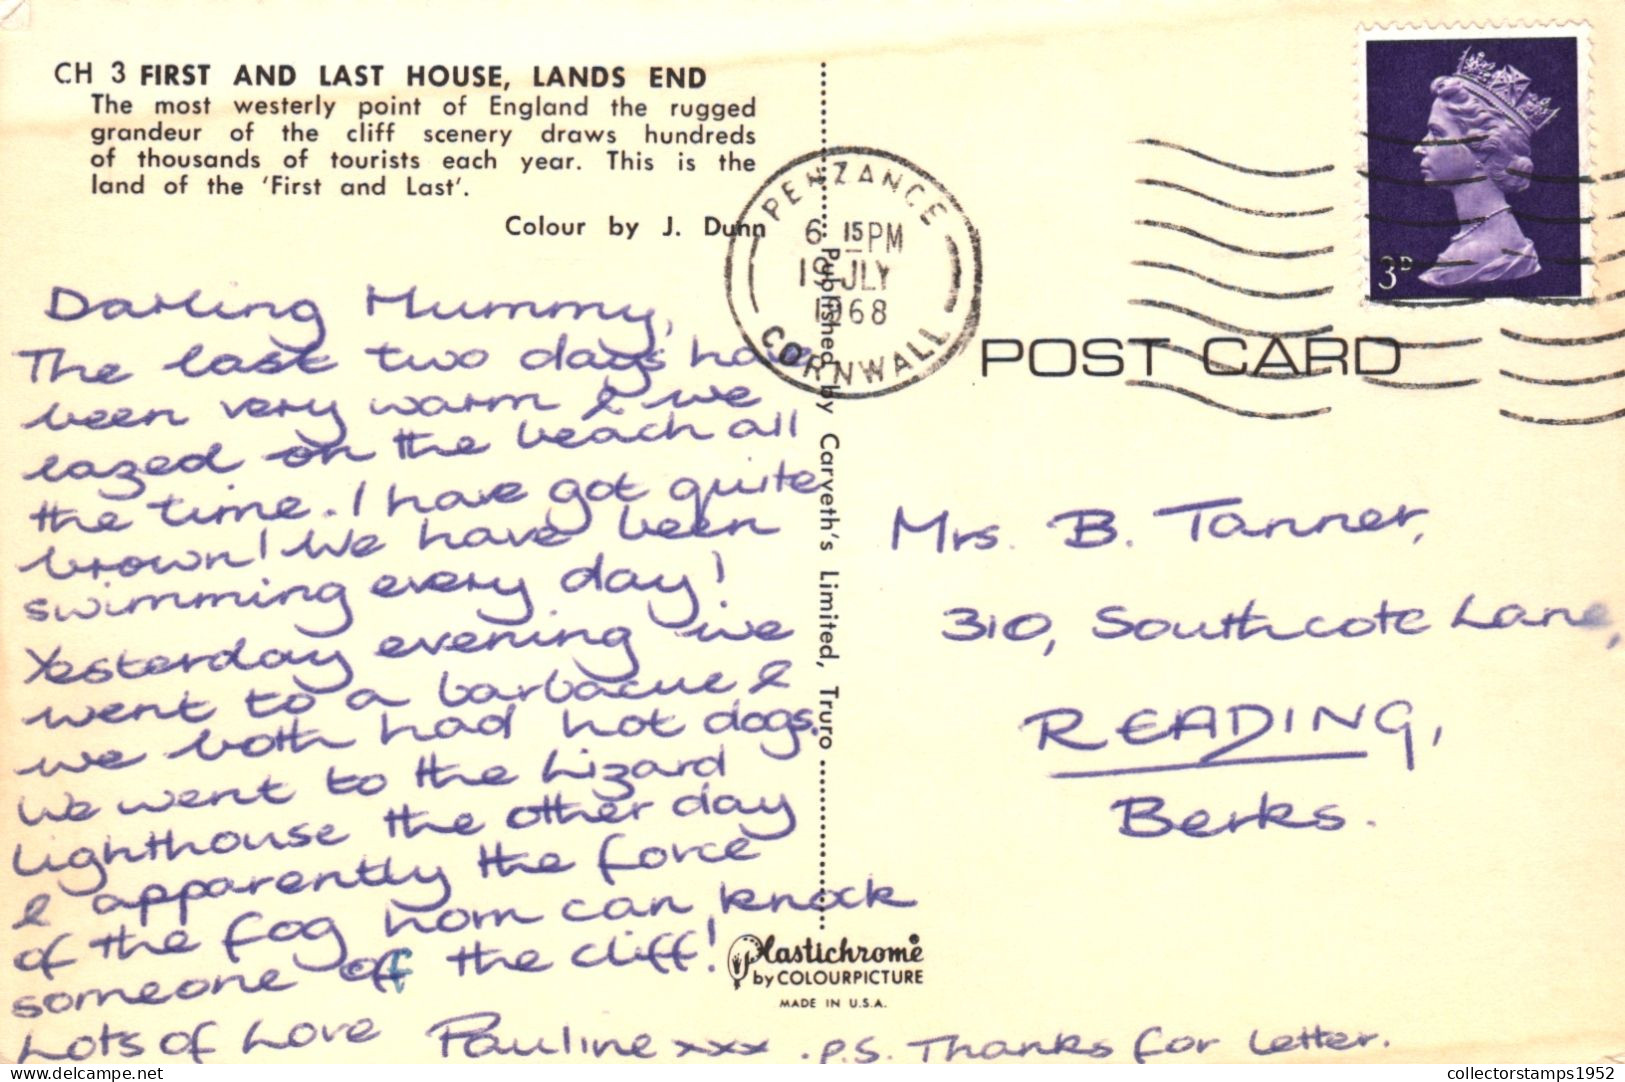 CH 3 FIRST AND LAST HOUSE, LANDS END
The most westerly point of England the rugged
grandeur of the cliff scenery draws hundreds
of thousands of tourists each year. This is the
land of the 'First and Last'.
Colour by J. Dunn
Darling Mummy,
The last two days have
been very warm & we
lazed on the beach all
the time. I have got quite
brown! We have been
swimming every day!
Yesterday evening we
went to a barbacue &
we both had hot dogs.
We went to the Lizard
Lighthouse the other day
& apparently the force
of the fog horn can knock
someone off the cliff!
Lots of Love Pauline xxx . P.S. Thanks for Letter.
Published by Carveth's Limited, Truro
Plastichrome®
by COLOURPICTURE
MADE IN U.S.A.
PENZANCE
6 15 PM
19 JLY
1968
CORNWALL
3D
POST CARD
Mrs. B. Tanner,
310, Southcote Lane,
READING,
Berks.
delcampe.net
collectorstamps1952